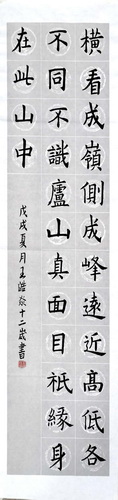 橫看成嶺側成峰遠近高低各
不同不識廬山真面目祇緣身
在此山中
戊戌夏月王十二歲書